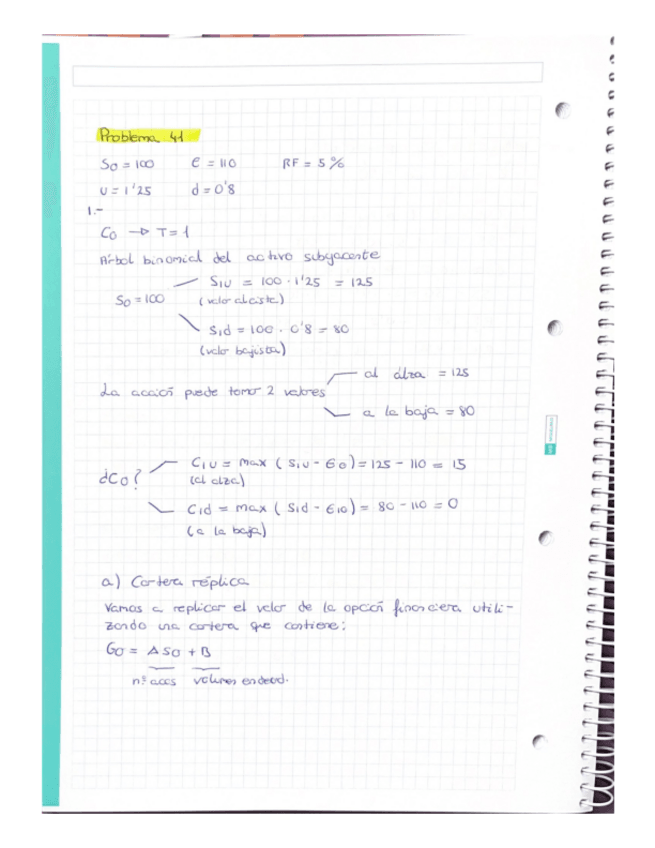 Problema 41
S0 = 100 e = 110 RF = 5%
U = 1'25 d = 0'8
1.-
C0 → T = 1
Árbol binomial del activo subyacente
S1U = 100 · 1'25 = 125
S0 = 100 (valor alcista)
S1d = 100 · 0'8 = 80
(valor bajista)
al alza = 125
La acción puede tomar 2 valores
a la baja = 80
C1U = max (S1U - E0) = 125 - 110 = 15
¿C0? (al alza)
C1d = max (S1d - E10) = 80 - 110 = 0
(a la baja)
a) Cartera réplica
Vamos a replicar el valor de la opción financiera utili-
zando una cartera que contiene:
C0 = Δ S0 + B
nº accs volumen endeud.